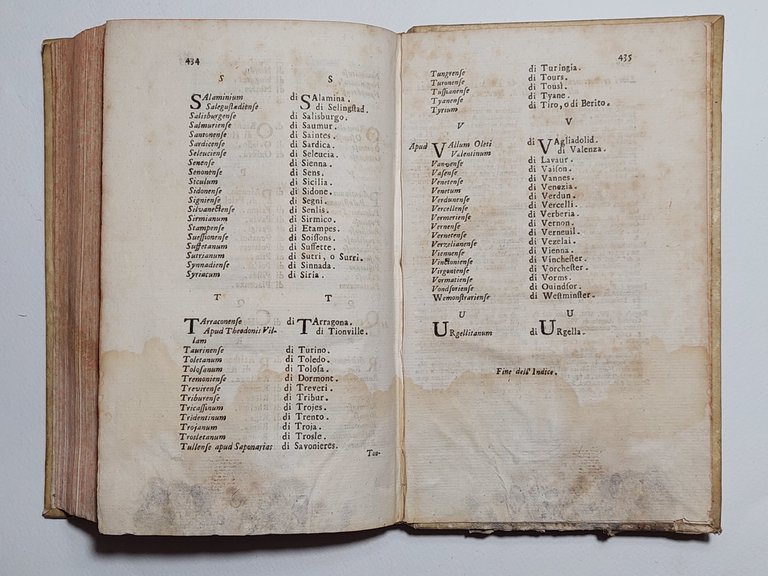 434
S S
SAlaminium di SAlamina.
Salegustadiense di Selingstad.
Salisburgense di Salisburgo.
Salmuriense di Saumur.
Santonense di Saintes.
Sardicense di Sardica.
Seleuciense di Seleucia.
Senense di Sienna.
Senonense di Sens.
Siculum di Sicilia.
Sidonense di Sidone.
Signiense di Segni.
Silvanectense di Senlis.
Sirmianum di Sirmico.
Stampense di Etampes.
Suessionense di Soissons.
Suffetanum di Suffette.
Sutrianum di Sutri, o Surri.
Synnadiense di Sinnada.
Syriacum di Siria.
T T
TArraconense di TArragona.
Apud Theodonis Vil- di Tionville.
lam
Taurinense di Turino.
Toletanum di Toledo.
Tolosanum di Tolosa.
Tremoniense di Dormont.
Trevirense di Treveri.
Triburense di Tribur.
Tricassinum di Trojes.
Tridentinum di Trento.
Trojanum di Troja.
Trosletanum di Trosle.
Tullense apud Saponarias di Savonieres.
435
Tungrense di Turingia.
Turonense di Tours.
Tussianense di Tousi.
Tyanense di Tyane.
Tyrium di Tiro, o di Berito.
V V
Apud VAllum Oleti di VAgliadolid.
Valentinum di Valenza.
di Lavaur.
Vasense di Vaison.
Venetense di Vannes.
Venetum di Venezia.
Verdunense di Verdun.
Vercellense di Vercelli.
Vermeriense di Verberia.
Vernense di Vernon.
Vernetense di Verneuil.
Verzelianense di Vezelai.
Viennense di Vienna.
Vinctoniense di Vinchester.
Virgontense di Vorchester.
Vormatiense di Vorms.
Vondsoriense di Ouindsor.
Wemonstrariense di Westminster.
U U
URgellitanum di URgella.
Fine dell'Indice.